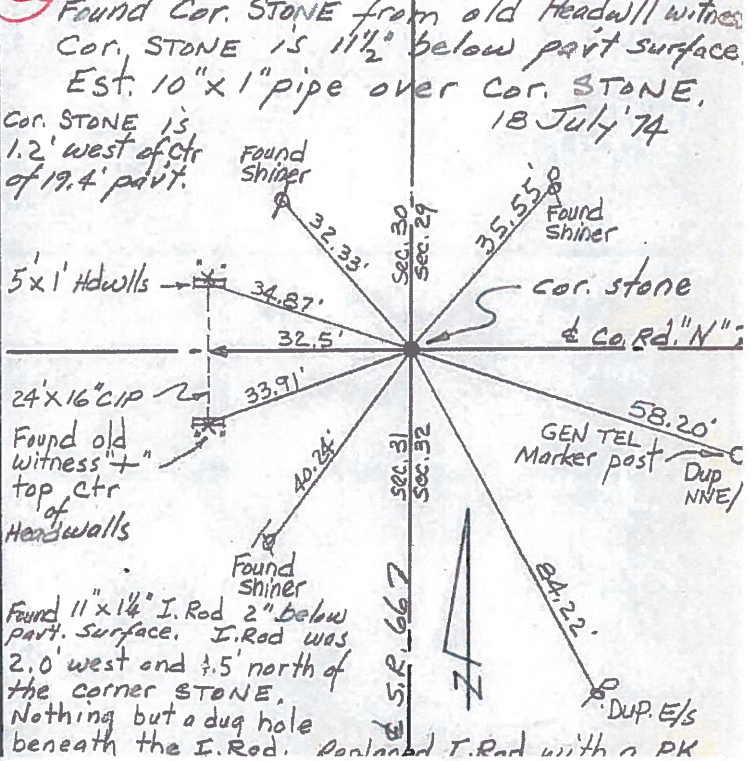 Found Cor. STONE from old Headwll witnes
Cor. STONE is 11½" below pav't surface.
Est. 10" x 1" pipe over Cor. STONE.
18 July '74
Cor. STONE is
1.2' west of Ctr
of 19.4' pav't.
Found
Shiner
32.33'
Sec. 30
Sec. 29
35.55'
Found
Shiner
5' x 1' Hdwlls
34.87'
cor. stone
32.5'
℄ Co. Rd. "N"
24' X 16" CIP
33.91'
58.20'
GEN TEL
Marker post
Dup
NNE/
Found old
witness "+"
top Ctr
of
Headwalls
40.24'
Sec. 31
Sec. 32
Found
Shiner
84.22'
℄ S.R. 66
N
Dup. E/S
Found 11" x 1¼" I. Rod 2" below
pav't. Surface. I. Rod was
2.0' west and .5' north of
the corner STONE.
Nothing but a dug hole
beneath the I. Rod. Replaced I. Rod with a PK